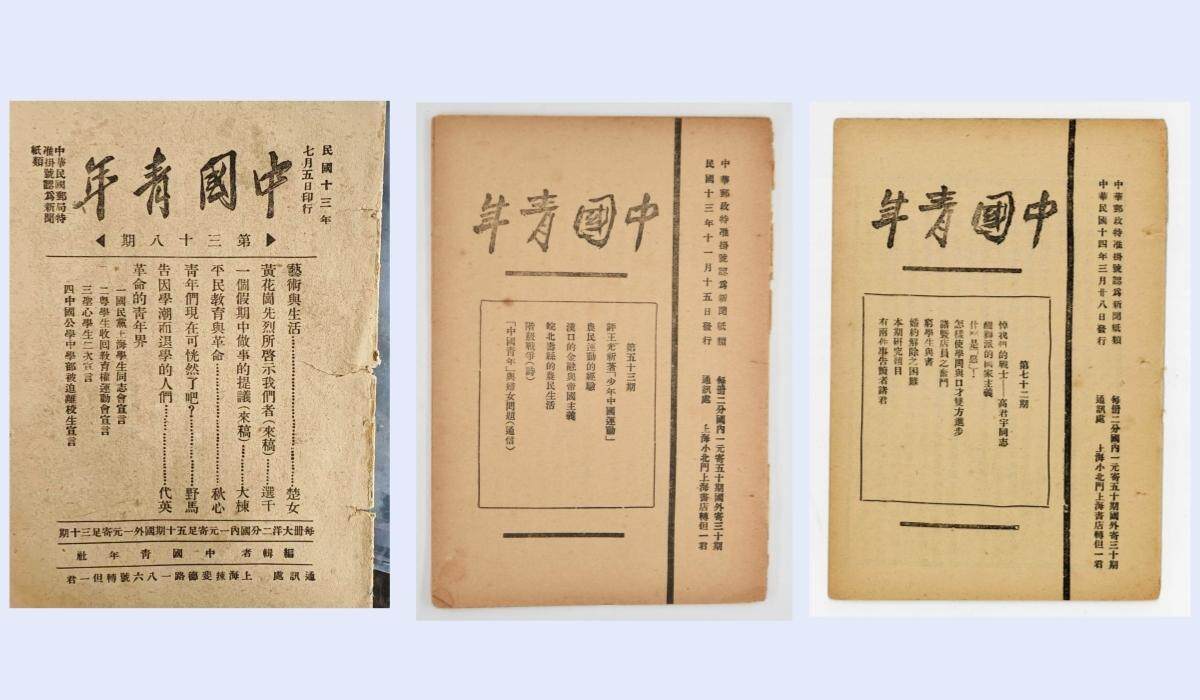 民國十三年
七月五日印行
中國青年
中華民國郵局特
准掛號認爲新聞
紙類
第三十八期
藝術與生活 楚女
黃花崗先烈所啓示我們者(來稿) 選千
一個假期中做事的提議(來稿) 大棟
平民教育與革命 秋心
青年們現在可恍然了吧? 野馬
告因學潮而退學的人們 代英
革命的青年界
一國民黨上海學生同志會宣言
二粵學生收回教育權運動會宣言
三聖心學生二次宣言
四中國公學中學部被迫離校生宣言
每冊大洋二分國內一元寄足五十期國外一元寄足三十期
編輯者 中國青年社
通訊處 上海辣斐德路一八六號轉但一君
中華郵政特准掛號認爲新聞紙類
民國十三年十一月十五日發行
每冊二分國內一元寄五十期國外寄三十期
通訊處 上海小北門上海書店轉但一君
中國青年
第五十三期
評王光祈著「少年中國運動」
農民運動的經驗
漢口的金融與帝國主義
皖北壽縣的農民生活
階級戰爭(詩)
「中國青年」與婦女問題(通信)
中華郵政特准掛號認爲新聞紙類
中華民國十四年三月廿八日發行
每冊二分國內一元寄五十期國外寄三十期
通訊處 上海小北門上海書店轉但一君
中國青年
第七十二期
悼我們的戰士——高君宇同志
醒獅派的國家主義
什麼是惡!
怎樣使學問與口才雙方進步
諸暨店員之奮鬥
窮學生與書
婚約解除之困難
本期研究項目
有兩件事告讀者諸君